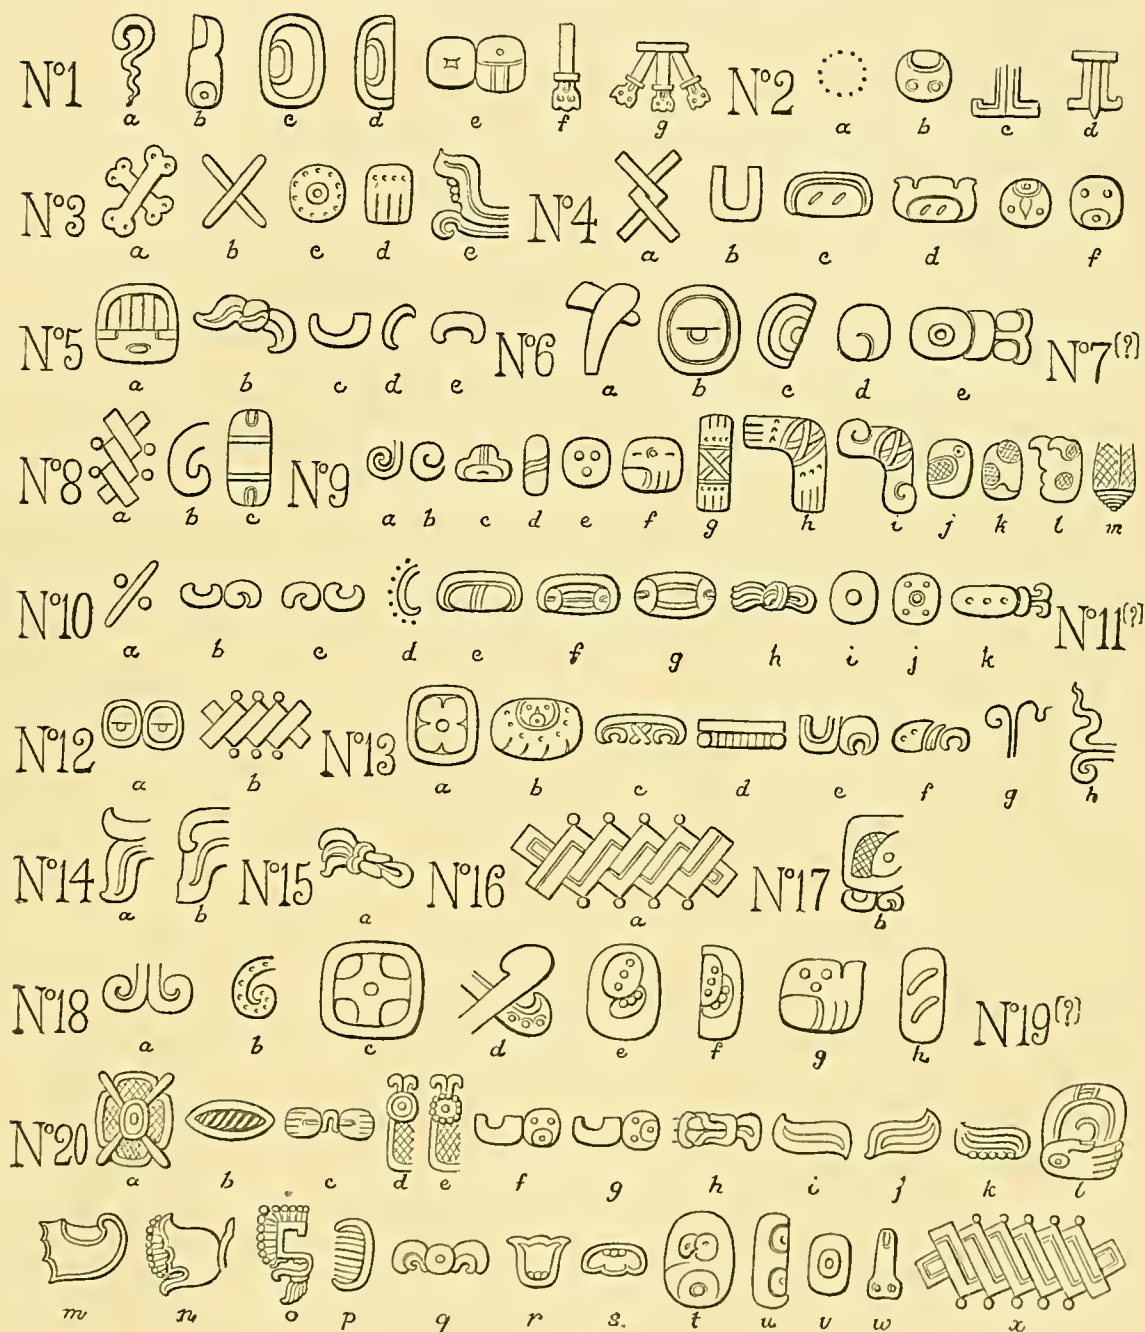 N°1 a b c d e f g N°2 a b c d
N°3 a b c d e N°4 a b c d f
N°5 a b c d e N°6 a b c d e N°7(?)
N°8 a b c N°9 a b c d e f g h i j k l m
N°10 a b c d e f g h i j k N°11(?)
N°12 a b N°13 a b c d e f g h
N°14 a b N°15 a N°16 a N°17 b
N°18 a b c d e f g h N°19(?)
N°20 a b c d e f g h i j k l
m n o p q r s. t u v w x